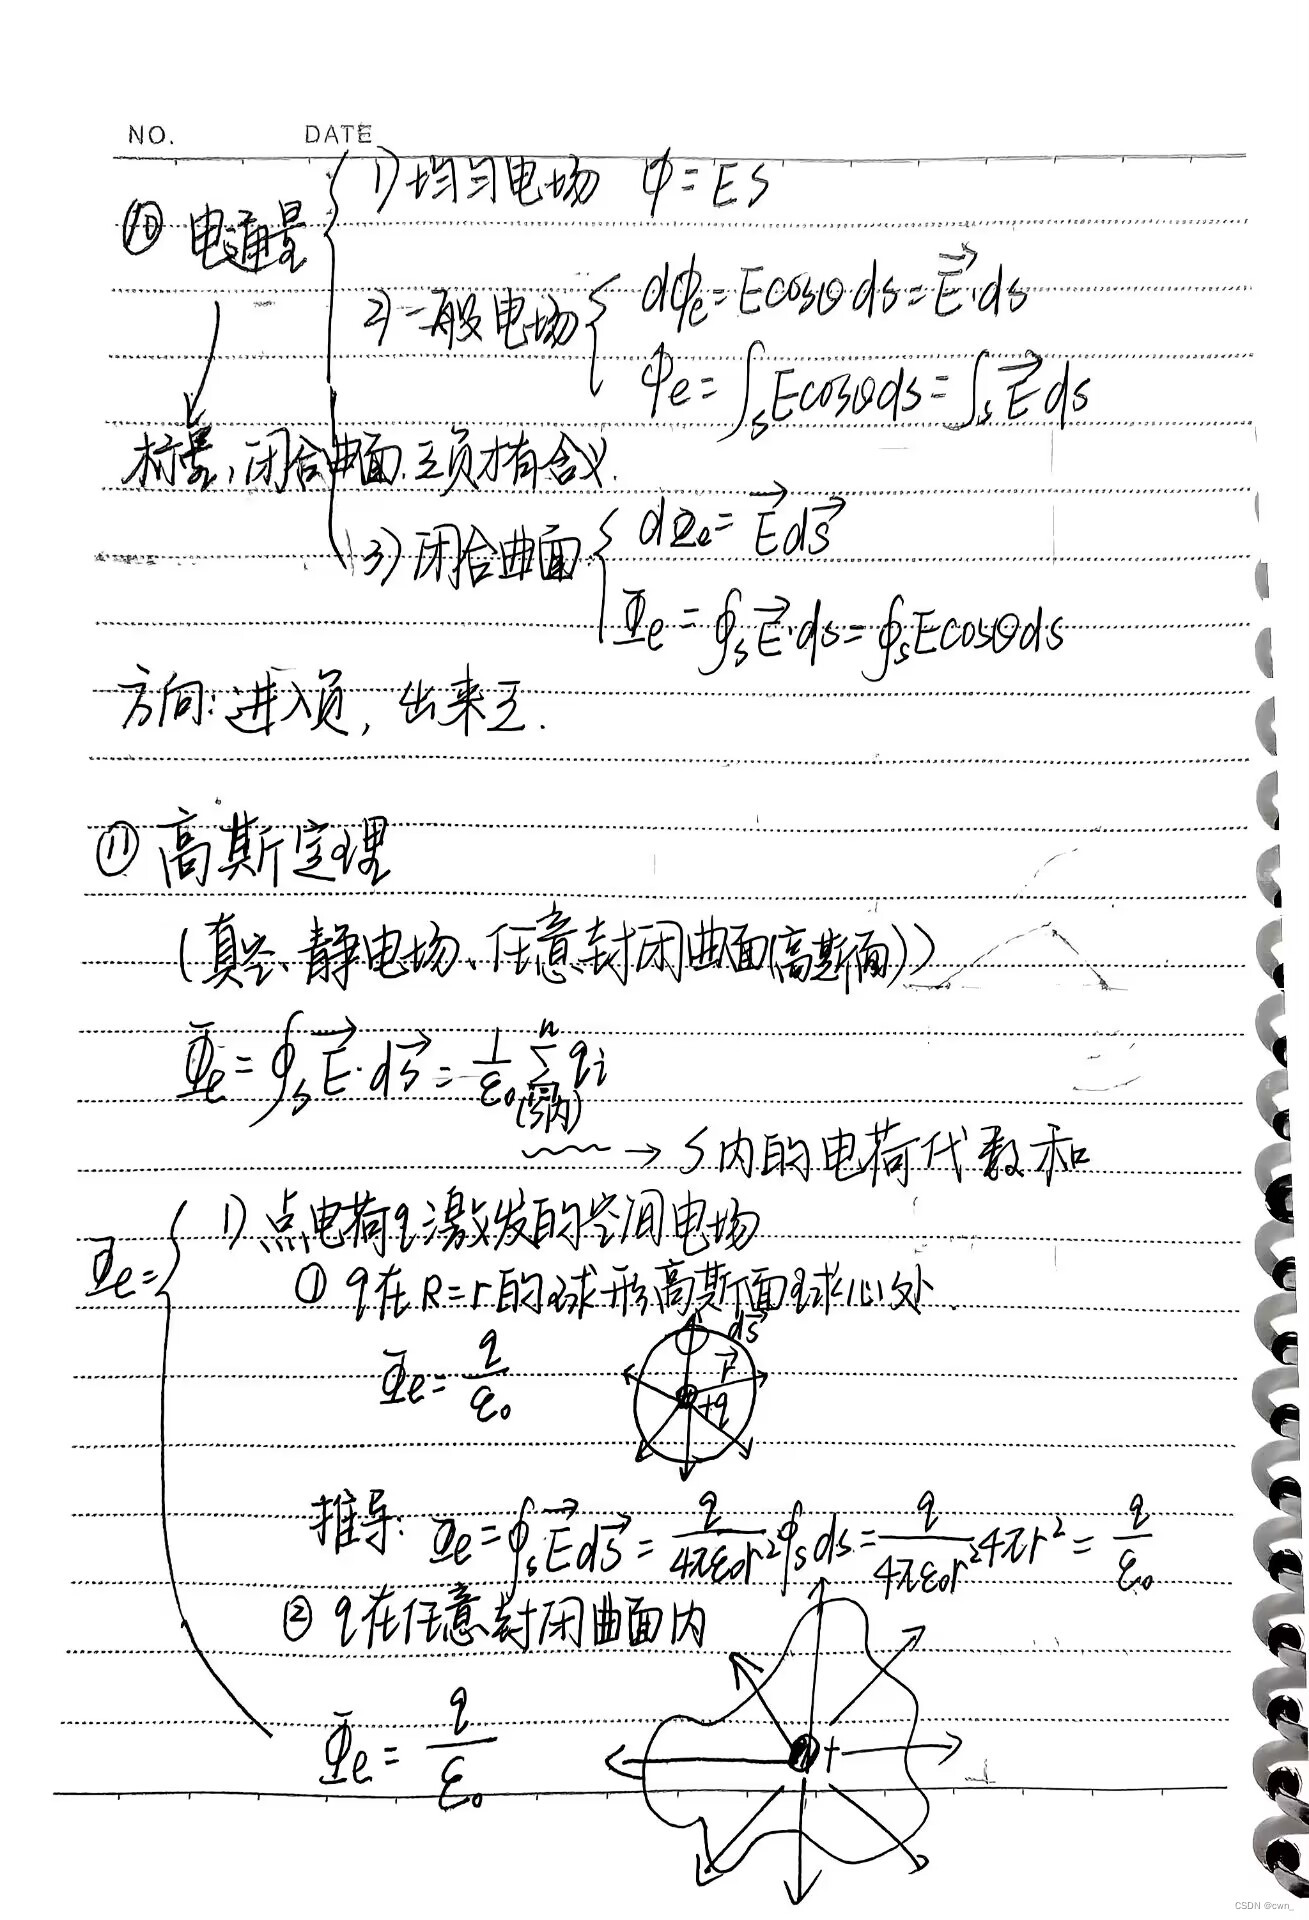 NO. DATE
⑩ 电通量
1) 均匀电场 Φ=ES
2) 一般电场
dΦe=Ecosθds=E⃗·ds
Φe=∫sEcosθds=∫sE⃗ds
标量,闭合曲面.正负才有含义.
3) 闭合曲面
dΦe=E⃗dS⃗
Φe=∮sE⃗·ds=∮sEcosθds
方向:进入负,出来正.
⑪ 高斯定理
(真空、静电场、任意封闭曲面(高斯面))
Φe=∮sE⃗·dS⃗=1/ε₀ ⁿΣ(S内) qi
→ S内的电荷代数和
Φe=
1) 点电荷q激发的空间电场
① q在R=r的球形高斯面球心处.
Φe=q/ε₀
dS⃗
r⃗
+q
推导: Φe=∮sE⃗dS⃗=q/4πε₀r²∮sds=q/4πε₀r²4πr²=q/ε₀
② q在任意封闭曲面内
Φe=q/ε₀
+
CSDN @cwn_